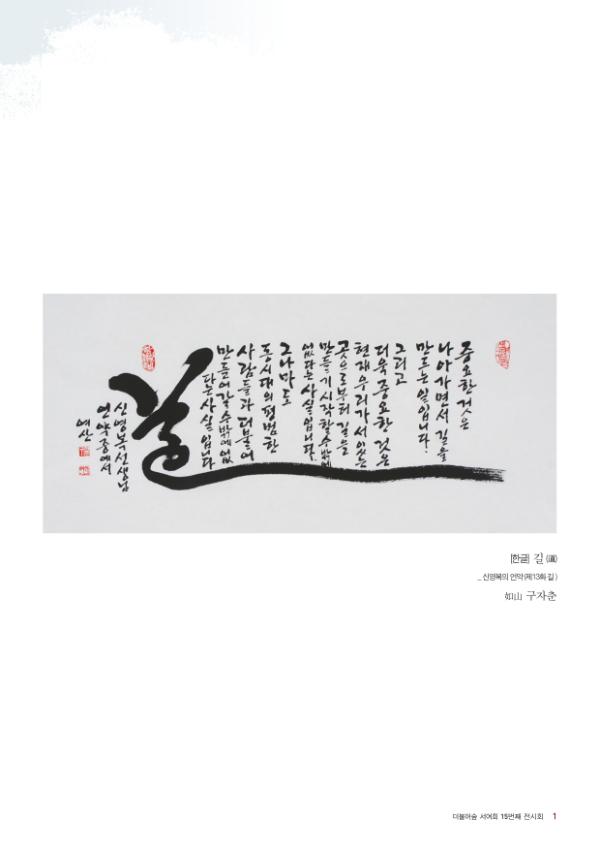 중요한 것은
나아가면서 길을
만드는 일입니다.
그리고
더욱 중요한 것은
현재 우리가 서 있는
곳으로부터 길을
만들기 시작할 수밖에
없다는 사실입니다.
그나마도
동시대의 평범한
사람들과 더불어
만들어 갈 수밖에 없
다는 사실입니다
길
신영복 선생님
언약 중에서
여산
[한글] 길 (道)
_ 신영복의 언약 (제13화 길)
如山 구자춘
더불어숲 서여회 15번째 전시회 1